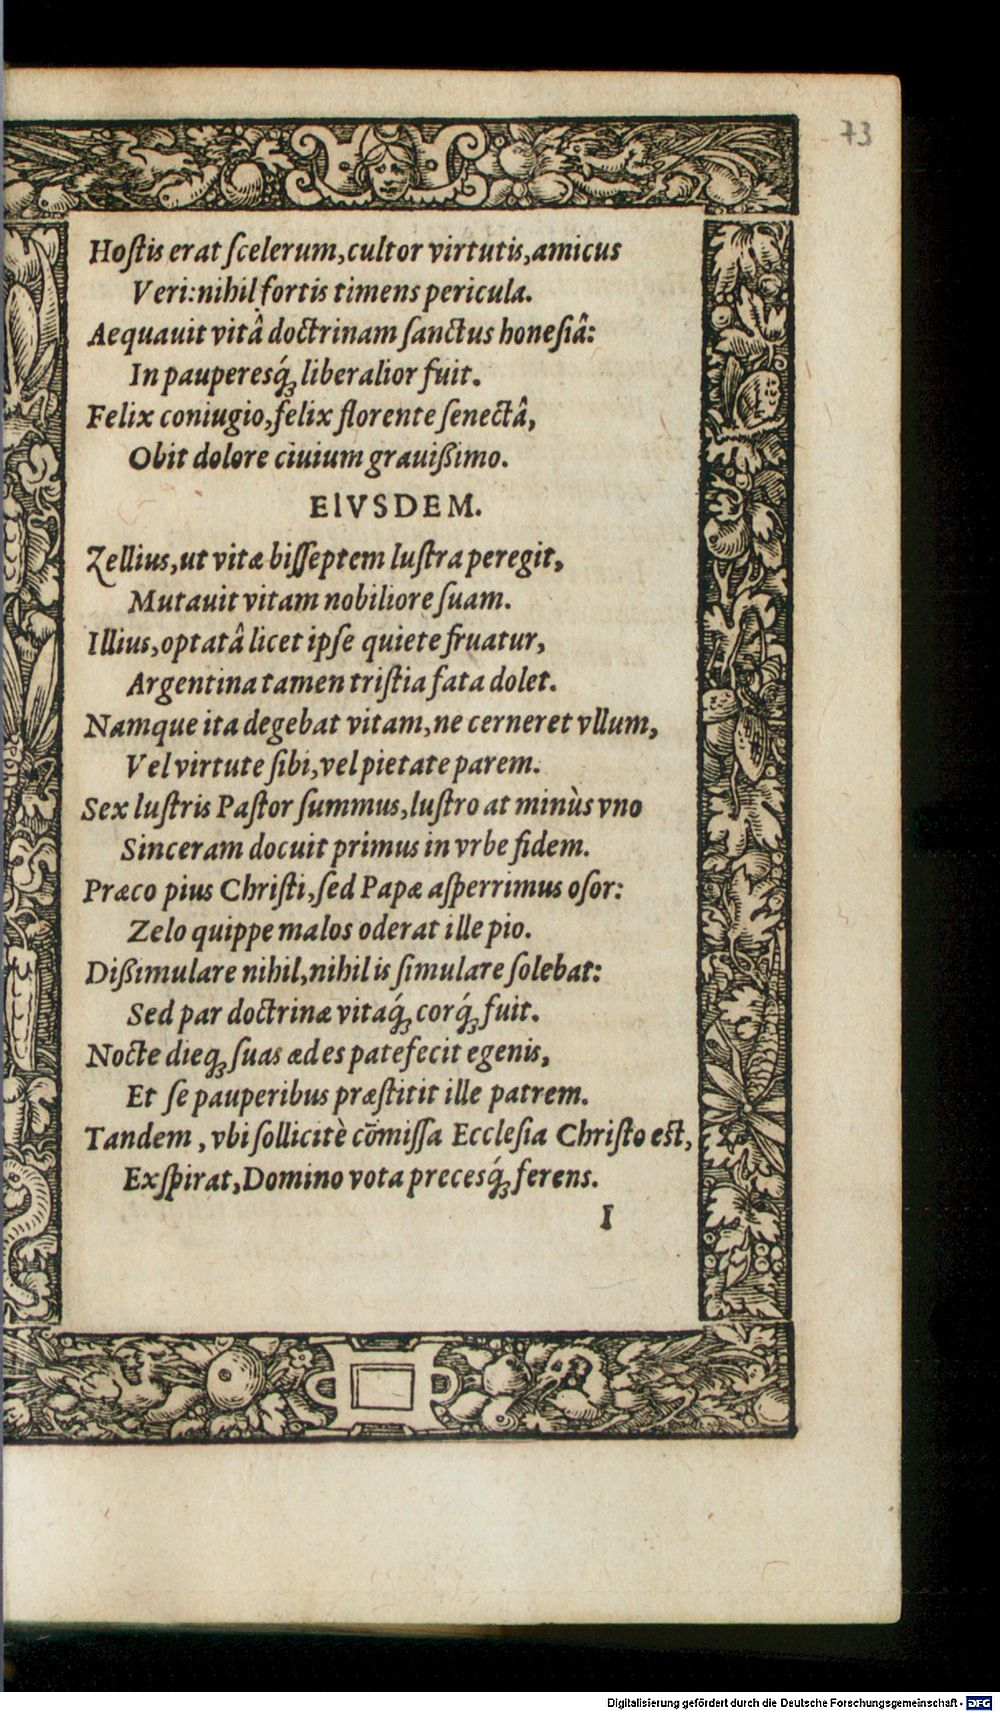 73
Hoſtis erat ſcelerum, cultor virtutis, amicus
Veri: nihil fortis timens pericula.
Aequauit vitâ doctrinam ſanctus honeſiâ:
In pauperesq́; liberalior fuit.
Felix coniugio, felix florente ſenectâ,
Obit dolore ciuium grauißimo.
EIVSDEM.
Zellius, ut vitæ biſſeptem luſtra peregit,
Mutauit vitam nobiliore ſuam.
Illius, optatâ licet ipſe quiete fruatur,
Argentina tamen triſtia fata dolet.
Namque ita degebat vitam, ne cerneret vllum,
Vel virtute ſibi, vel pietate parem.
Sex luſtris Paſtor ſummus, luſtro at minùs vno
Sinceram docuit primus in vrbe fidem.
Præco pius Chriſti, ſed Papæ aſperrimus oſor:
Zelo quippe malos oderat ille pio.
Dißimulare nihil, nihil is ſimulare ſolebat:
Sed par doctrinæ vitaq́; corq́; fuit.
Nocte dieq; ſuas ædes patefecit egenis,
Et ſe pauperibus præſtitit ille patrem.
Tandem, vbi ſollicitè cõmiſſa Eccleſia Chriſto eſt,
Exſpirat, Domino vota precesq́; ferens.
I
Digitalisierung gefördert durch die Deutsche Forschungsgemeinschaft - DFG